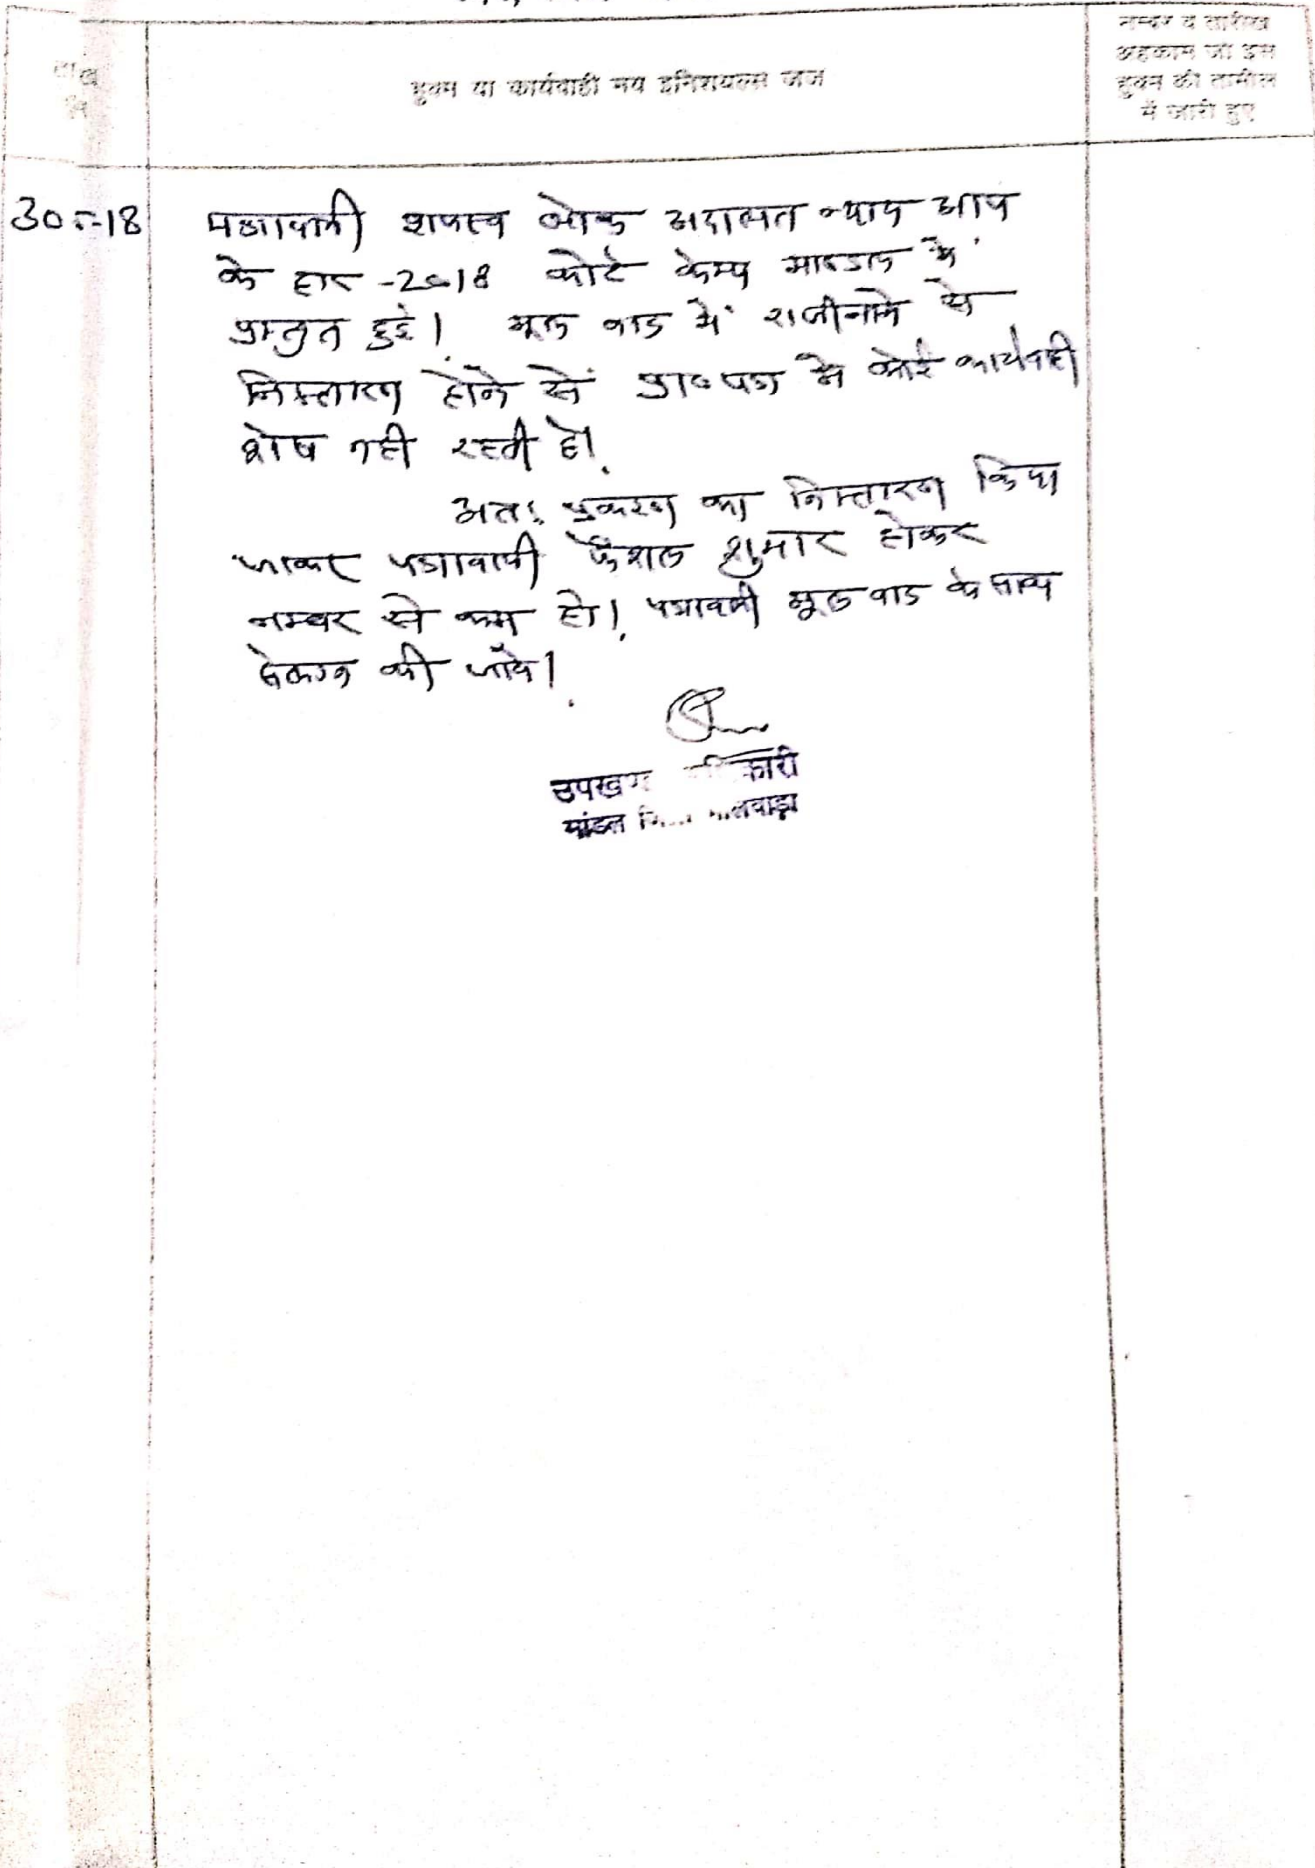 हुक्म या कार्यवाही मय इनिशियल्स जज
नम्बर व तारीख
अहकाम जो इस
हुक्म की तामील
में जारी हुए
पत्रावली राजस्व लोक अदालत न्याय आप
के द्वार -2018 कोर्ट केम्प माण्डल में
प्रस्तुत हुई। मूल वाद में राजीनामे से
निस्तारण होने से प्रा० पत्र में कोई कार्यवाही
शेष नही रहती है।
अतः प्रकरण का निस्तारण किया
जाकर पत्रावली फैशल शुमार होकर
नम्बर से कम हो। पत्रावली मूल वाद के साथ
संलग्न की जावे।
मांडल